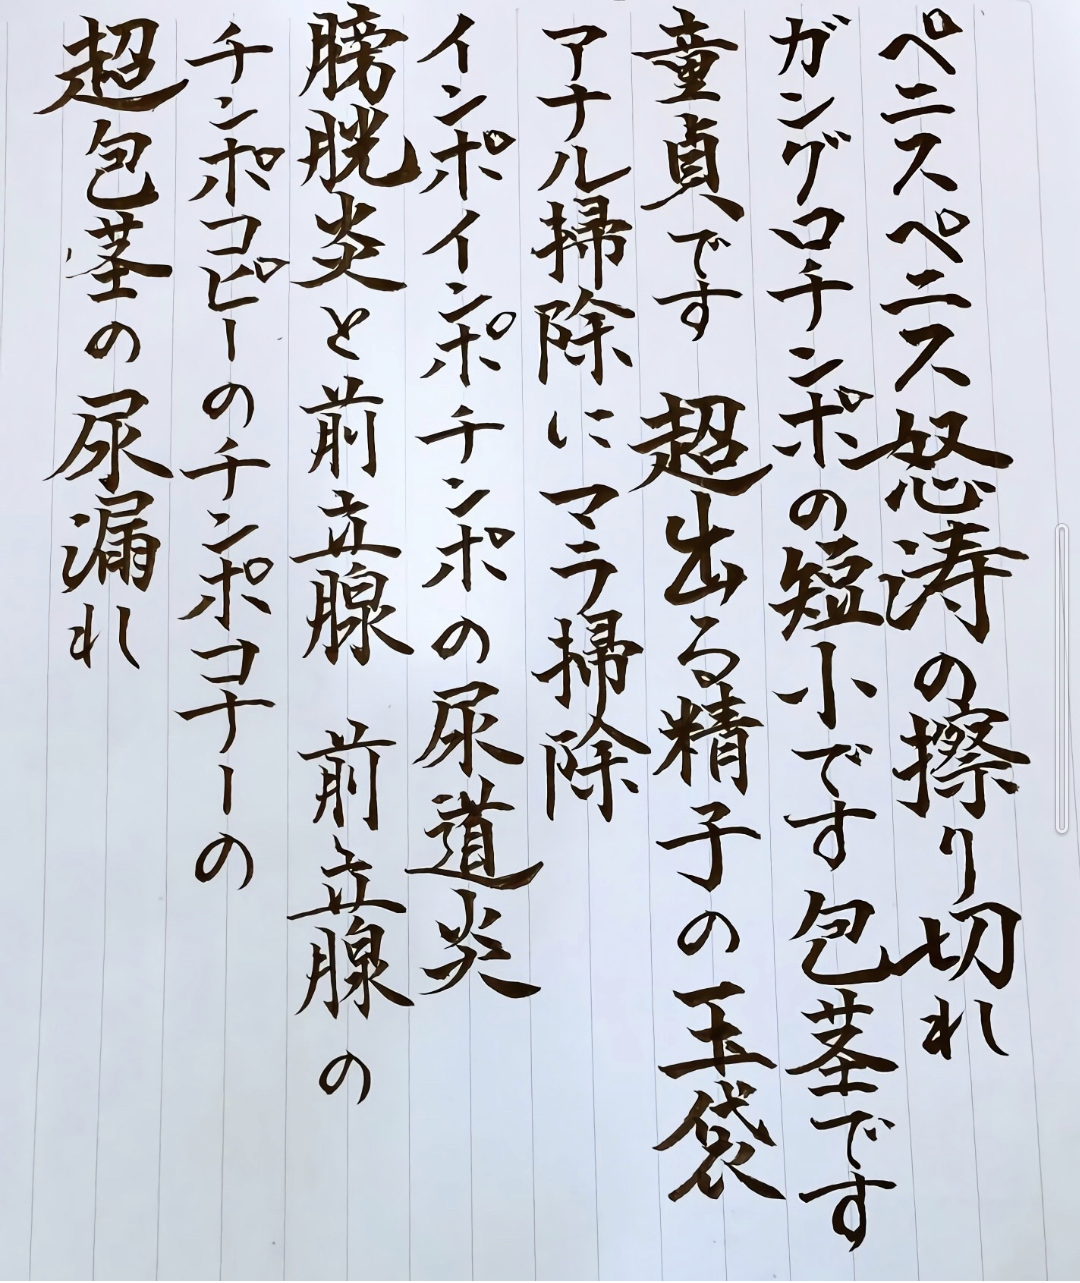 ペニスペニス怒涛の擦り切れ
ガングロチンポの短小です包茎です
童貞です 超出る精子の玉袋
アナル掃除にマラ掃除
インポインポチンポの尿道炎
膀胱炎と前立腺 前立腺の
チンポコピーのチンポコナーの
超包茎の尿漏れ